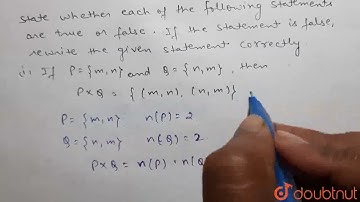 State whether each of the following statements
are true or false. If the statement is false,
rewrite the given statement correctly
i) If P={m,n} and Q = {n,m}, then
P×Q = {(m,n), (n,m)}
P= {m,n} n(P) = 2
Q= {n,m} n(Q) = 2
P×Q = n(P) · n(Q
doubtnut